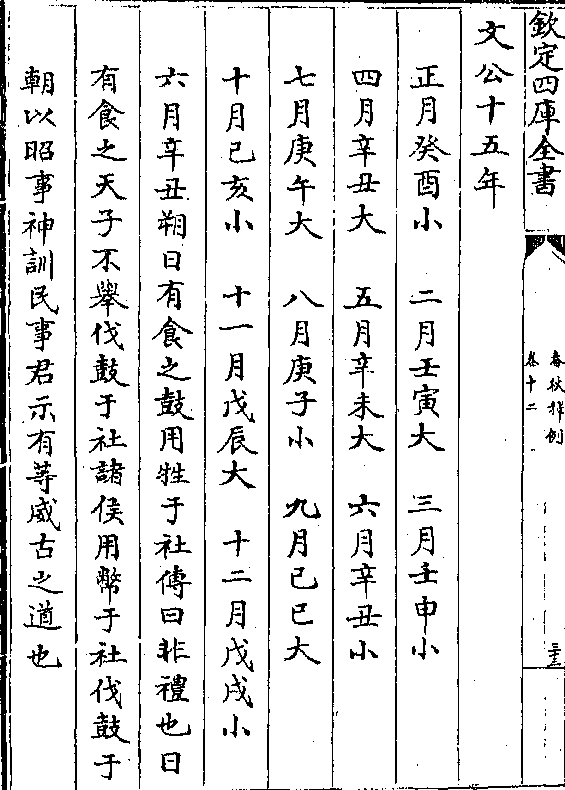 欽定四庫全書
春秋釋例
卷十二
文公十五年
正月癸酉小 二月壬寅大 三月壬申小
四月辛丑大 五月辛未大 六月辛丑小
七月庚午大 八月庚子小 九月己巳大
十月己亥小 十一月戊辰大 十二月戊戌小
六月辛丑朔日有食之鼓用牲于社傳曰非禮也日
有食之天子不舉伐鼓于社諸侯用幣于社伐鼓于
朝以昭事神訓民事君示有等威古之道也